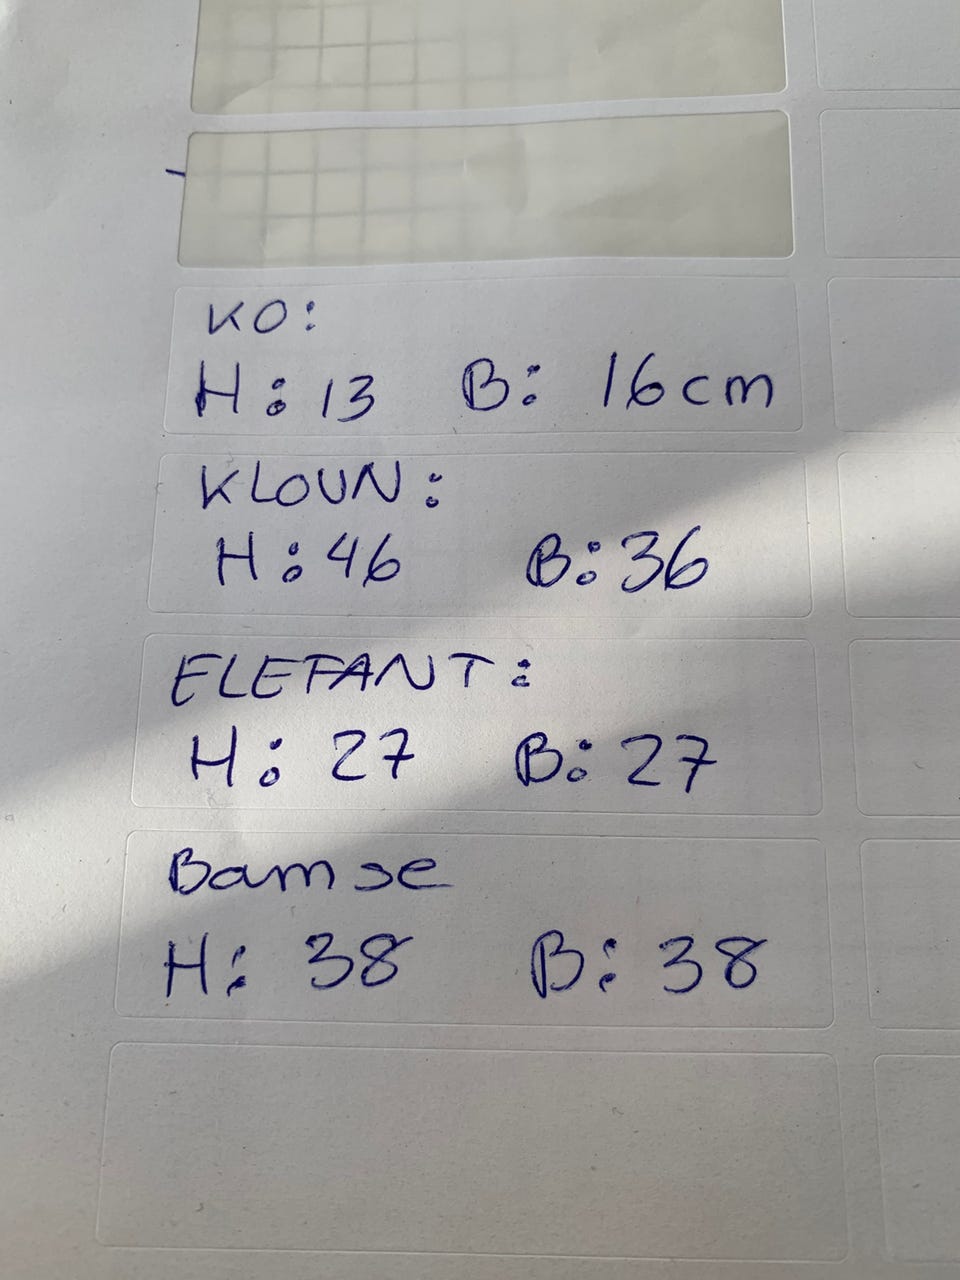 KO:
H: 13 B: 16cm
KLOUN:
H: 46 B: 36
ELEFANT:
H: 27 B: 27
Bamse
H: 38 B: 38